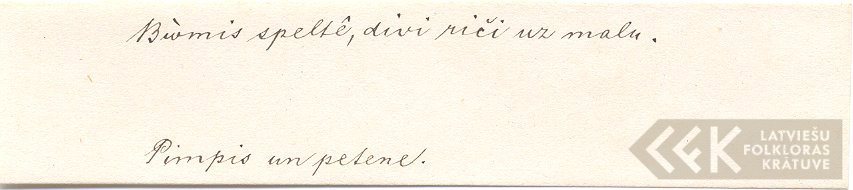 Bùomis speltê, divi riči uz malu.
Pimpis un petene.
LATVIEŠU
FOLKLORAS
KRĀTUVE